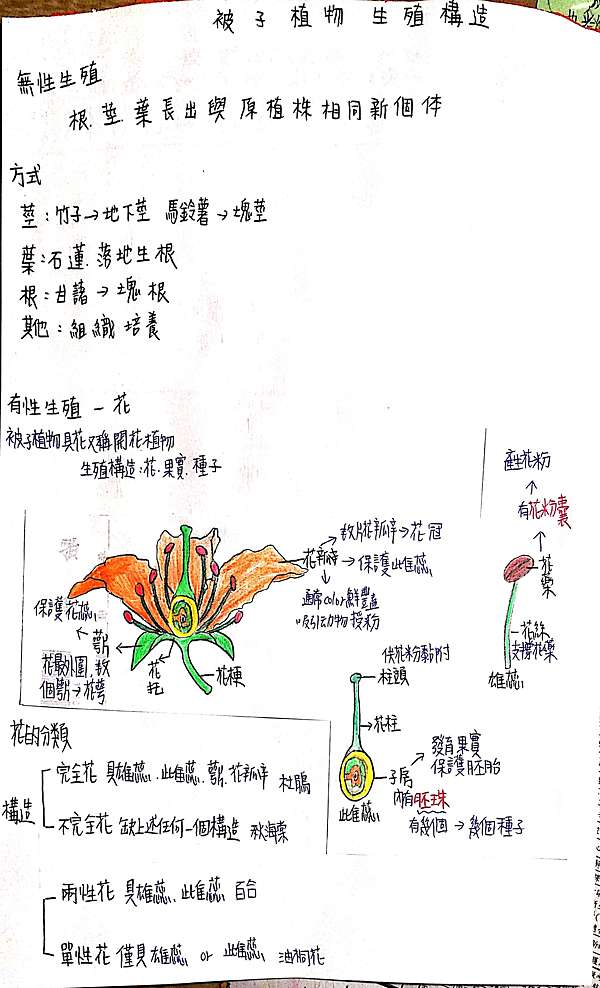 被子植物 生殖構造
無性生殖
根.莖.葉長出與原植株相同新個体
方式
莖:竹子→地下莖 馬鈴薯→塊莖
葉:石蓮.落地生根
根:甘藷→塊根
其他:組織培養
有性生殖-花
被子植物具花又稱開花植物
生殖構造:花.果實.種子
數片花瓣→花冠
花瓣→保護雌蕊
通常color鮮豐
吸引動物授粉
保護花蕊
萼片
花最外圍,數
個萼片→花萼
花托
花梗
產生花粉
有花粉囊
花藥
花絲
支撐花藥
雄蕊
供花粉黏附
柱頭
花柱
子房
發育果實
保護胚胎
內有胚珠
有幾個→幾個種子
雌蕊
花的分類
構造
完全花 具雄蕊.雌蕊.萼片.花瓣 杜鵑
不完全花 缺上述任何一個構造 秋海棠
兩性花 具雄蕊.雌蕊 百合
單性花 僅具雄蕊 or 雌蕊 油桐花